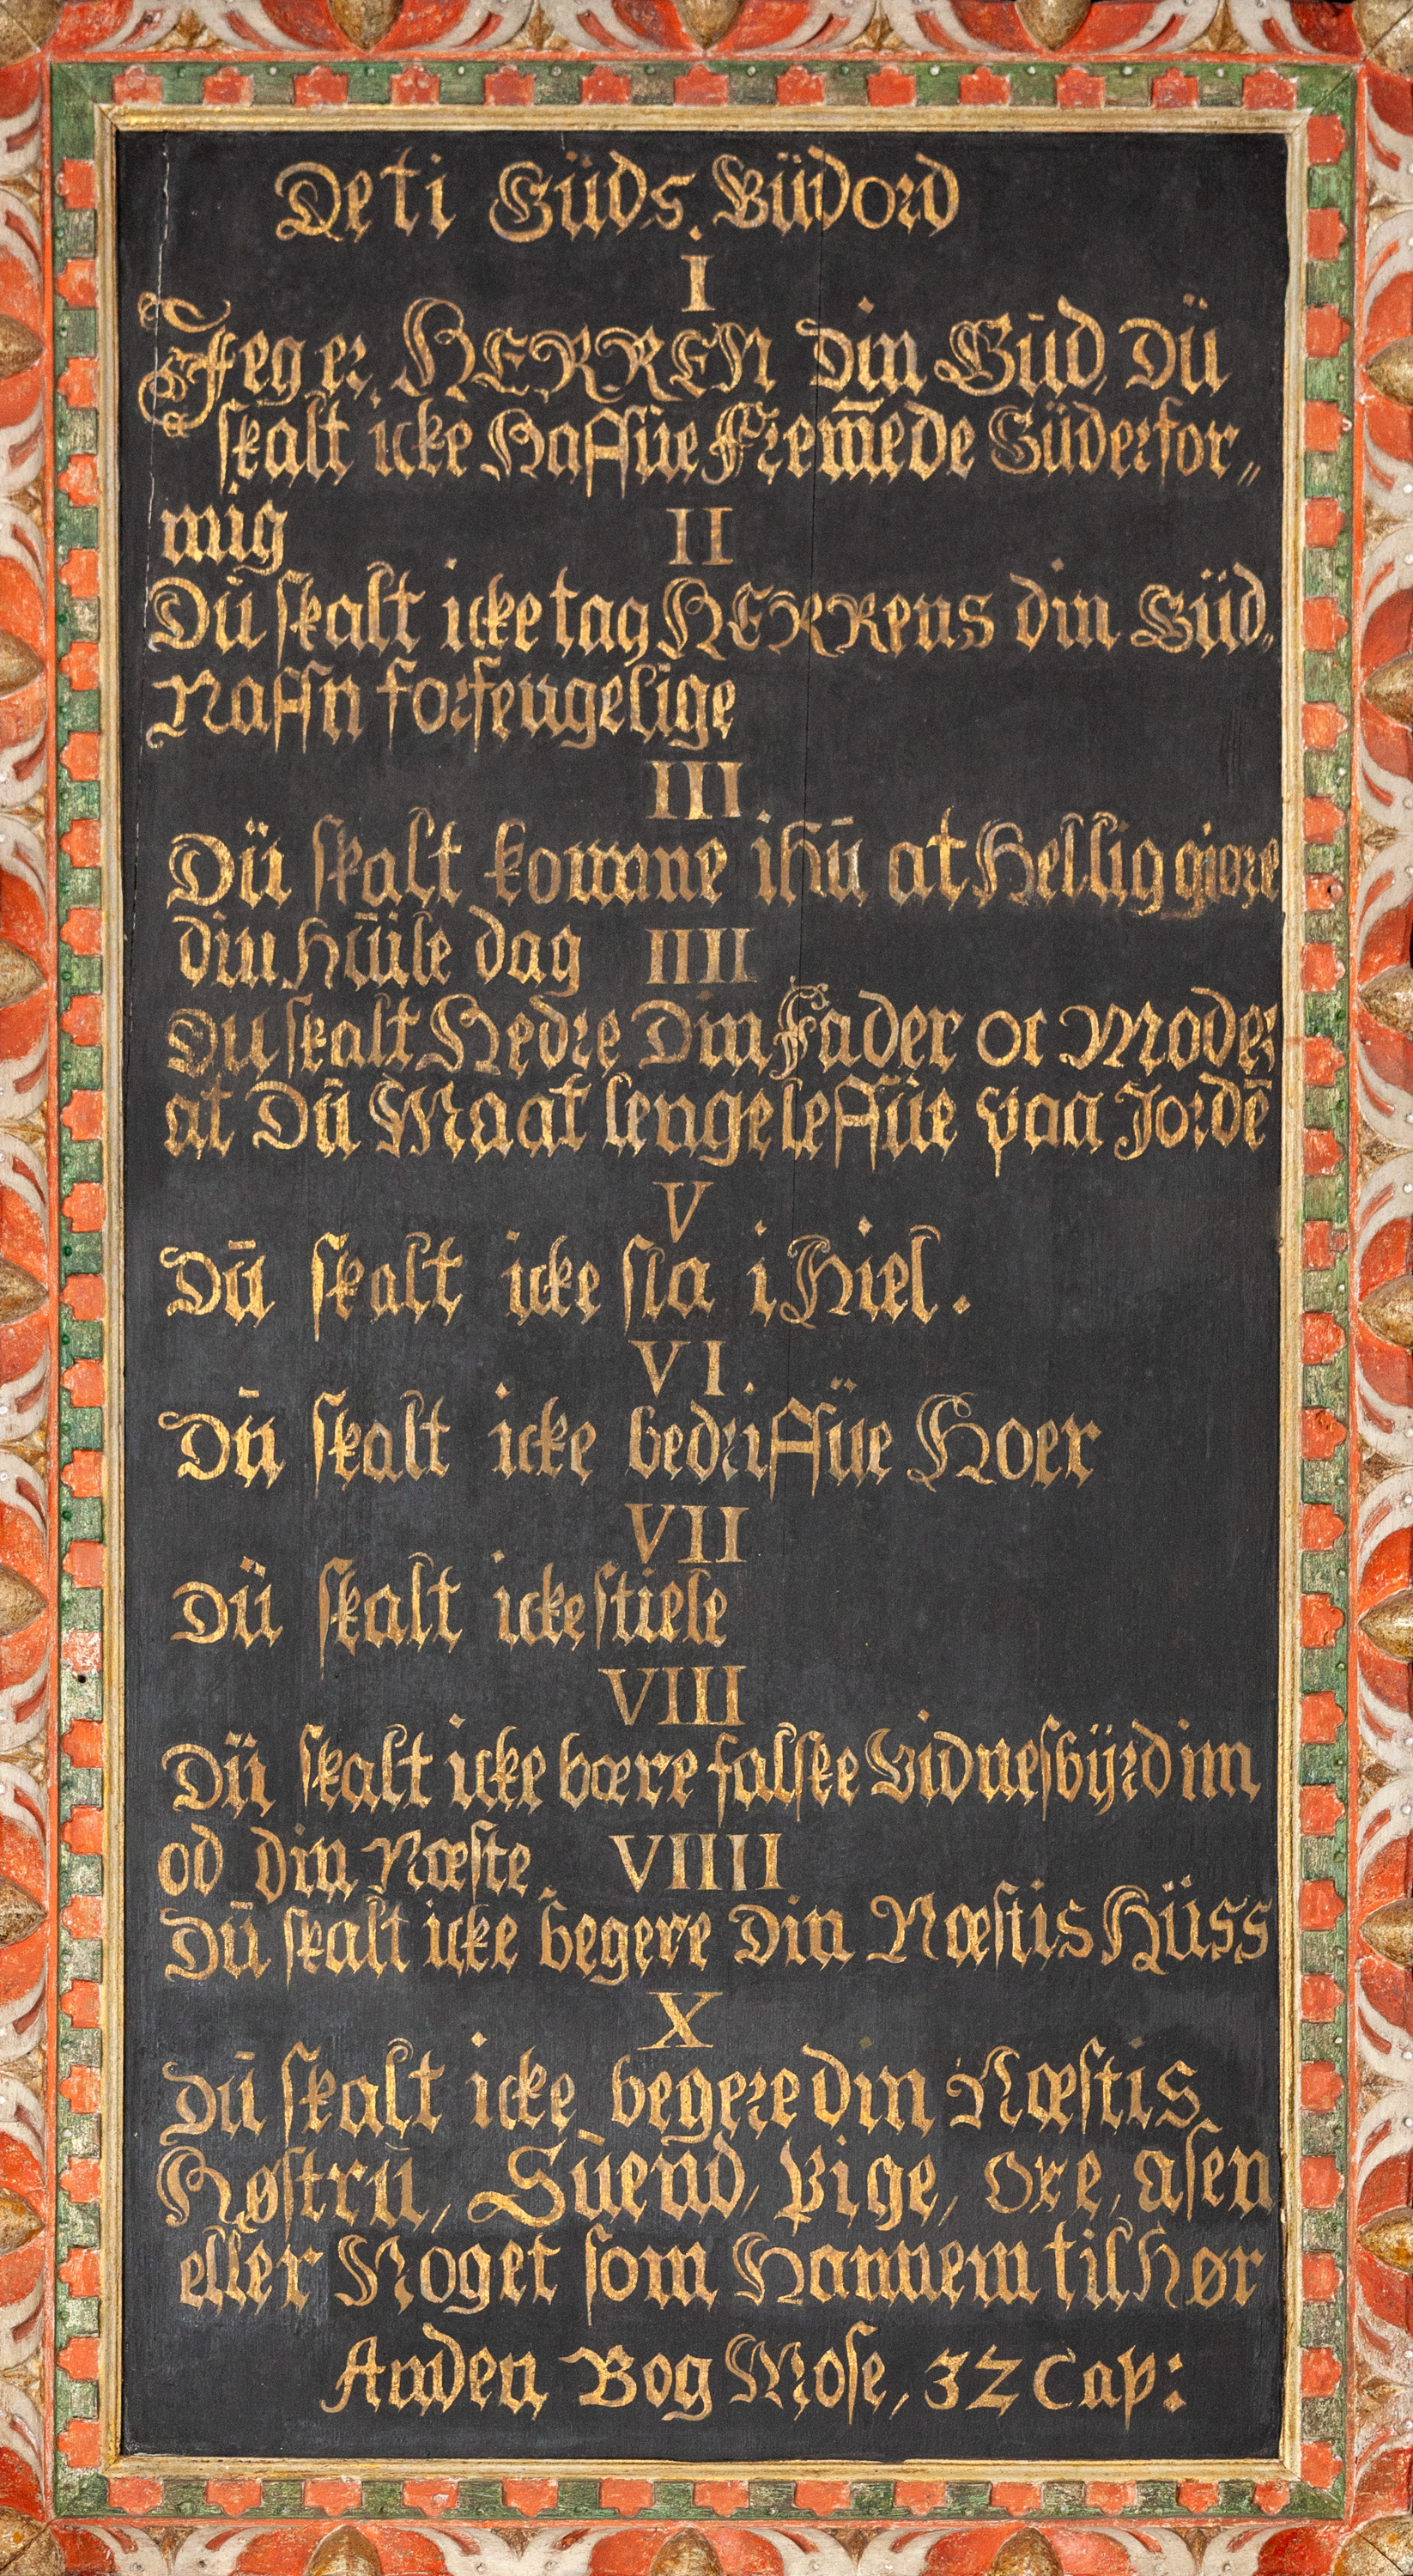 De ti Güds Büdord
I
Jeg er HERREN din Gŭd, Dü
skalt icke Haffüe Frem̄ede Güder for„
mig II
Dŭ skalt icke tag HERRens din Güd,
Naffn forfengelige
III
Dü skalt komme ihū at Hellig giøre
din hūile dag IIII
Du skalt Hedre Din Fader oc Moder
at Dū Maat lenge leffüe paa Jordē
V
Dū skalt icke sla i Hiel.
VI.
Dū skalt icke bedriffüe Hoer
VII
Dü skalt icke stiele
VIII
Dü skalt icke bære falske Vidnesbÿrd im
od din Næste VIIII
Dū skalt icke begere Din Næstis Hüss
X
Dū skalt icke begere din Næstis
Høstrū, Sūend, Pige, Oxe, asen
eller Noget som Hannem til hør
Anden Bog Mose, 32 Cap: